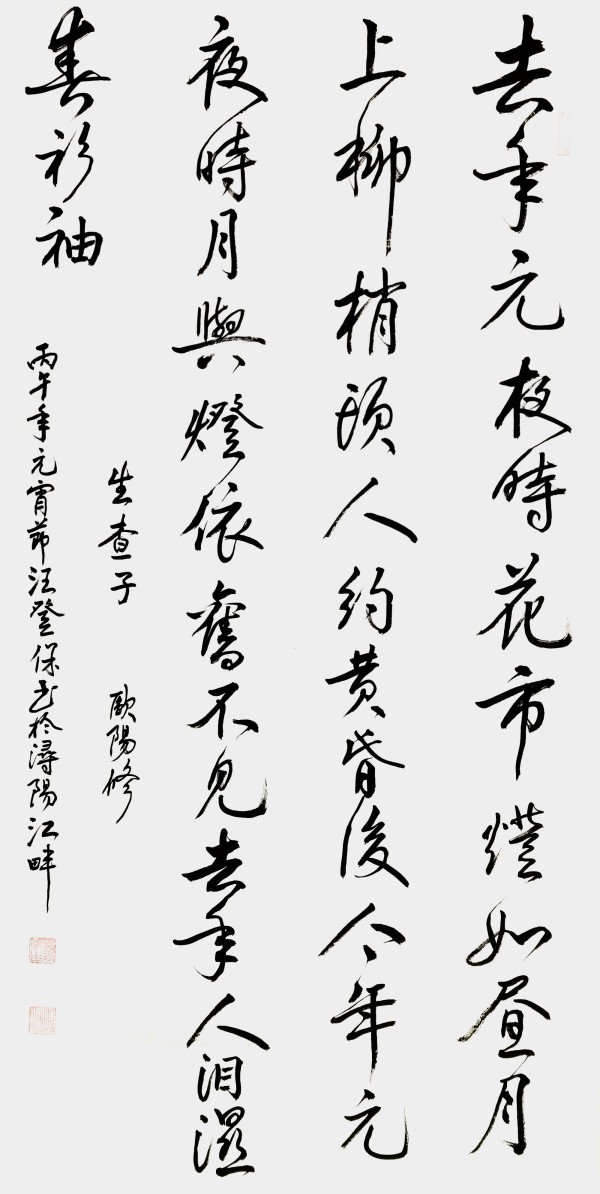 去年元夜時花市燈如晝月
上柳梢頭人約黃昏後今年元
夜時月與燈依舊不見去年人淚濕
春衫袖
生查子 歐陽修
丙午年元宵節汪登保書於潯陽江畔